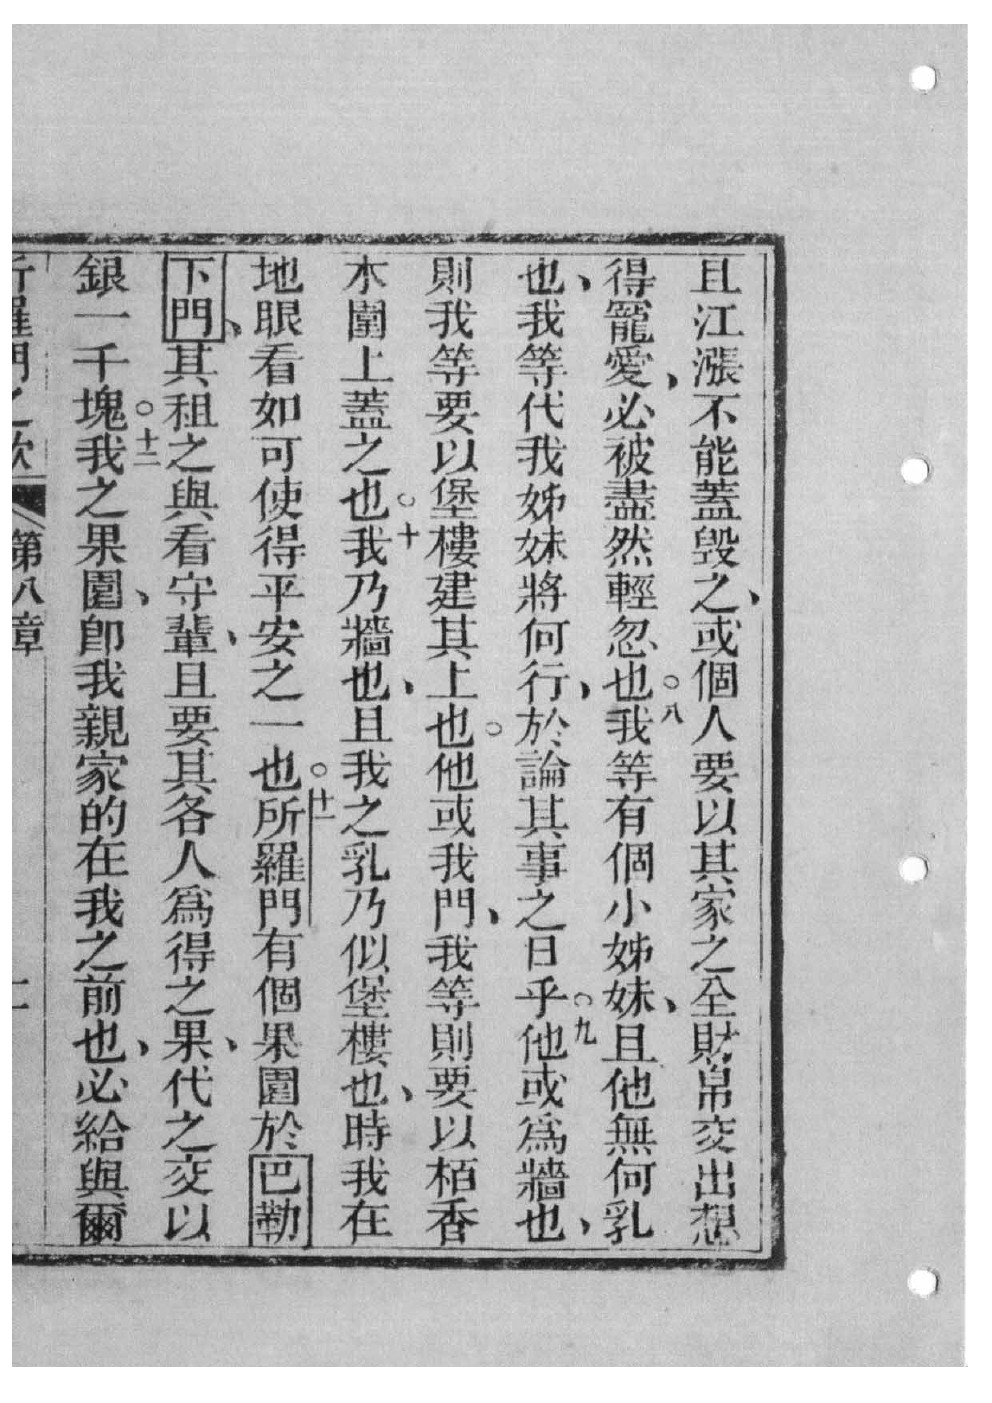 且江漲不能蓋毀之、或個人要以其家之全財帛交出想
得寵愛、必被盡然輕忽也○八我等有個小姊妹、且他無何乳
也、我等代我姊妹將何行、於論其事之日乎○九他或爲牆也、
則我等要以堡樓建其上也○他或我門、我等則要以栢香
木圍上蓋之也○十我乃牆也、且我之乳乃似堡樓也、時我在
地眼看如可使得平安之一也○十一所羅門有個果園於巴勒
下門、其租之與看守輩、且要其各人爲得之果、代之交以
銀一千塊○十二我之果園、卽我親家的在我之前也、必給與爾
所羅門之歌 第八章 十一